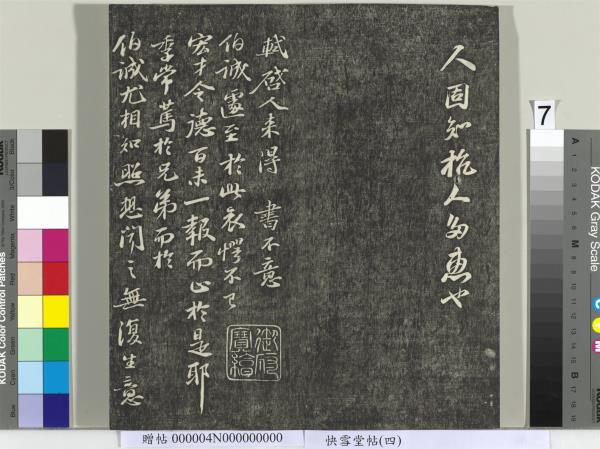 人固知抗人多惠也
軾啓人來得 書不意
伯誠遽至於此哀愕不已
宏才令德百未一報而止於是耶
季常篤於兄弟而於
伯誠尤相知照想聞之無復生意
御府寶繪
7
KODAK Gray Scale
A 1 2 3 4 5 6 M 8 9 10 11 12 13 14 15 B 17 18 19
C M
KODAK Color Control Patches
Blue Cyan Green Yellow Red Magenta White 3/Color Black
贈帖 000004N000000000
快雪堂帖(四)